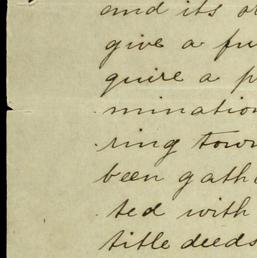 and its or
give a fu
quire a p
mination
ring town
been gath
ted with
title deeds